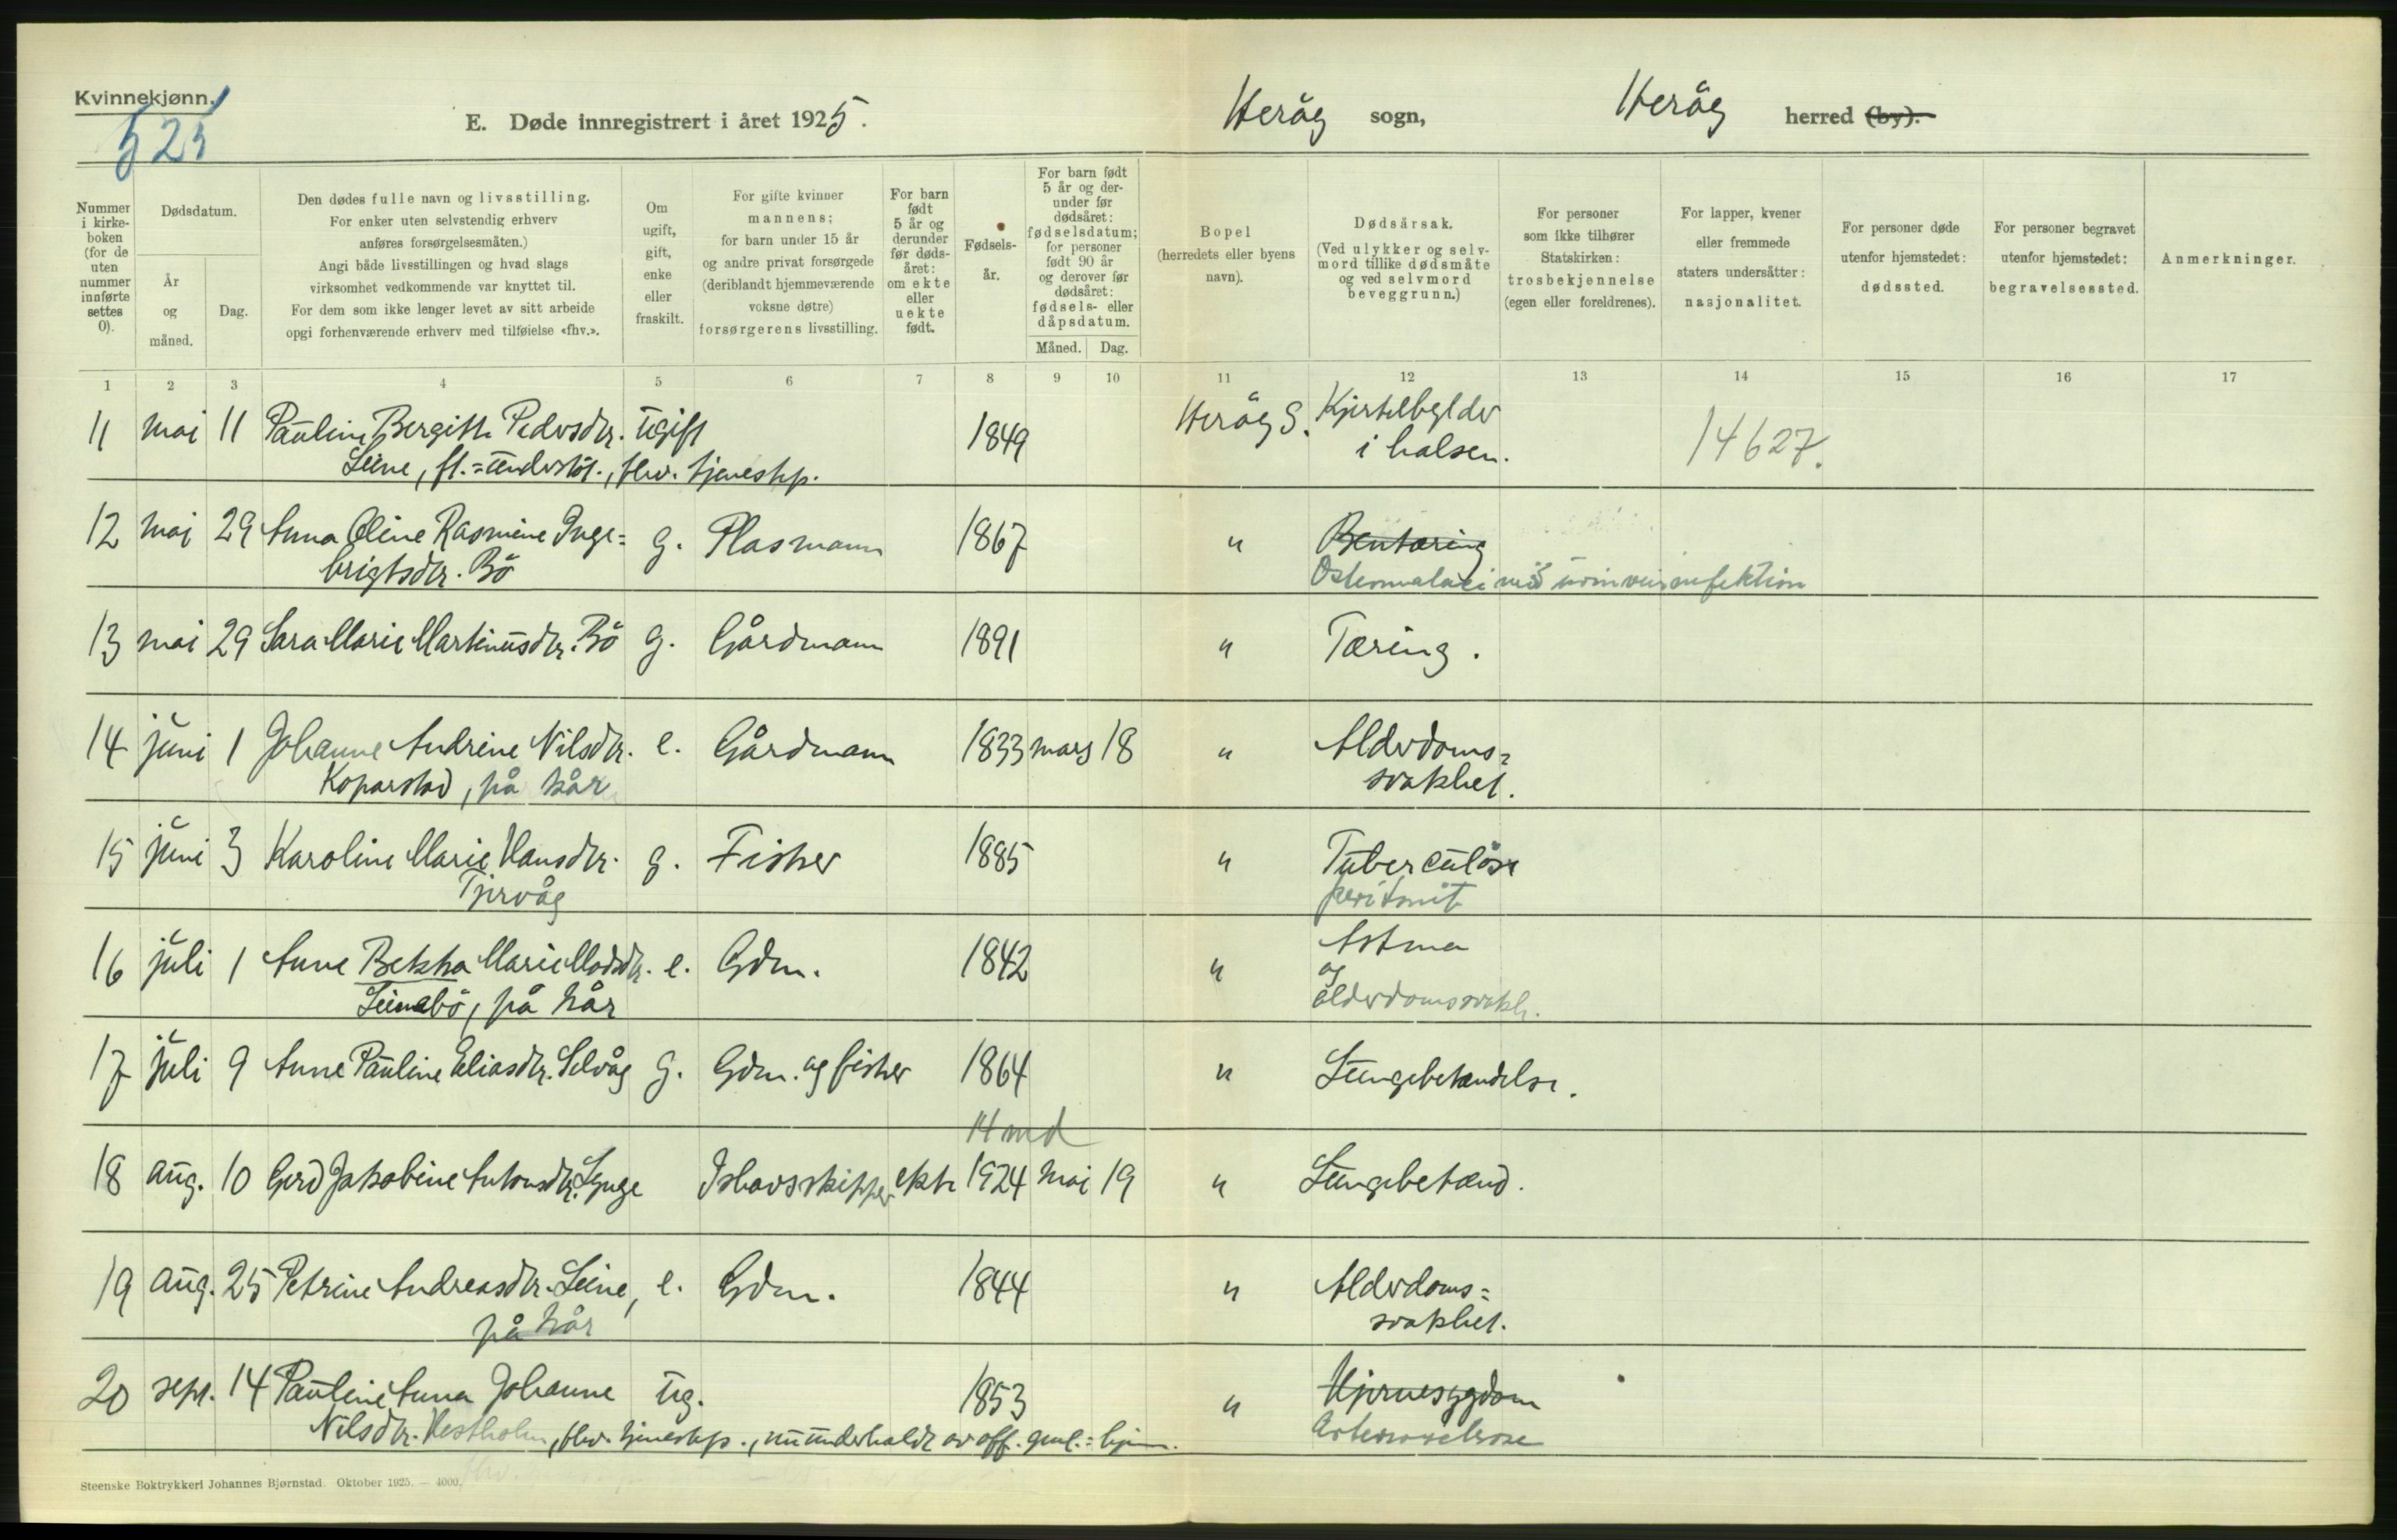 Kvinnekjønn.
525
E. Døde innregistrert i året 1925.
Herøy sogn, Herøy herred (by).
Nummer i kirke- boken (for de uten nummer innførte settes 0).
Dødsdatum.
År og måned.
Dag.
Den dødes fulle navn og livsstilling.
For enker uten selvstendig erhverv
anføres forsørgelsesmåten.)
Angi både livsstillingen og hvad slags
virksomhet vedkommende var knyttet til.
For dem som ikke lenger levet av sitt arbeide
opgi forhenværende erhverv med tilføielse «fhv.».
Om ugift, gift, enke eller fraskilt.
For gifte kvinner
mannens;
for barn under 15 år
og andre privat forsørgede
(deriblandt hjemmeværende
voksne døtre)
forsørgerens livsstilling.
For barn født 5 år og derunder før døds- året: om ekte eller uekte født.
Fødsels- år.
For barn født 5 år og der- under før dødsåret: fødselsdatum; for personer født 90 år og derover før dødsåret: fødsels- eller dåpsdatum.
Måned. Dag.
Bopel
(herredets eller byens
navn).
Dødsårsak.
(Ved ulykker og selv-
mord tillike dødsmåte
og ved selvmord
beveggrunn.)
For personer
som ikke tilhører
Statskirken:
trosbekjennelse
(egen eller foreldrenes).
For lapper, kvener
eller fremmede
staters undersåtter:
nasjonalitet.
For personer døde
utenfor hjemstedet:
dødssted.
For personer begravet
utenfor hjemstedet:
begravelsessted.
Anmerkninger.
1 2 3 4 5 6 7 8 9 10 11 12 13 14 15 16 17
11 mai 11 Pauline Bergitte Pedersdtr. ugift 1849 Herøy S. Kjertelbylder
Leine, fhv. tjenestep. i halsen. 14627.
12 mai 29 Anna Oline Rasmine Inge= g. Plasmann 1867 " Bentæring
brigtsdtr. Bö Osteomalaci med urinveisinfektion
13 mai 29 Sara Marie Martinusdtr. Bö g. Gårdmann 1891 " Tæring.
14 juni 1 Johanne Andrine Nilsdtr. e. Gårdmann 1833 mars 18 " Alderdoms=
Koparstad, på kår svakhet.
15 juni 3 Karoline Marie Hansdtr. g. Fisker 1885 " Tuberculøse
Tjervåg peritonit
16 juli 1 Anne Bekka Marie Madsdtr. e. Gdm. 1842 " Astma
Leinebö, på kår og alderdomssvakh.
17 juli 9 Anne Pauline Eliasdtr. Selvåg g. Gdm. og fisker 1864 " Lungebetændelse.
14 md
18 aug. 10 Gerd Jakobine Antonsdtr. Lynge Ishavsskipper ekte 1924 mai 19 " Lungebetænd.
19 aug. 25 Petrine Andreasdtr. Leine, e. Gdm. 1844 " Alderdoms=
på kår svakhet.
20 sept. 14 Pauline Anna Johanne ug. 1853 " Hjernesygdom
Nilsdtr. Vestholm, fhv. tjenestep., nu underholdt av off. gml.=hjem. Arteriosclerose
Steenske Boktrykkeri Johannes Bjørnstad. Oktober 1925. — 4000.